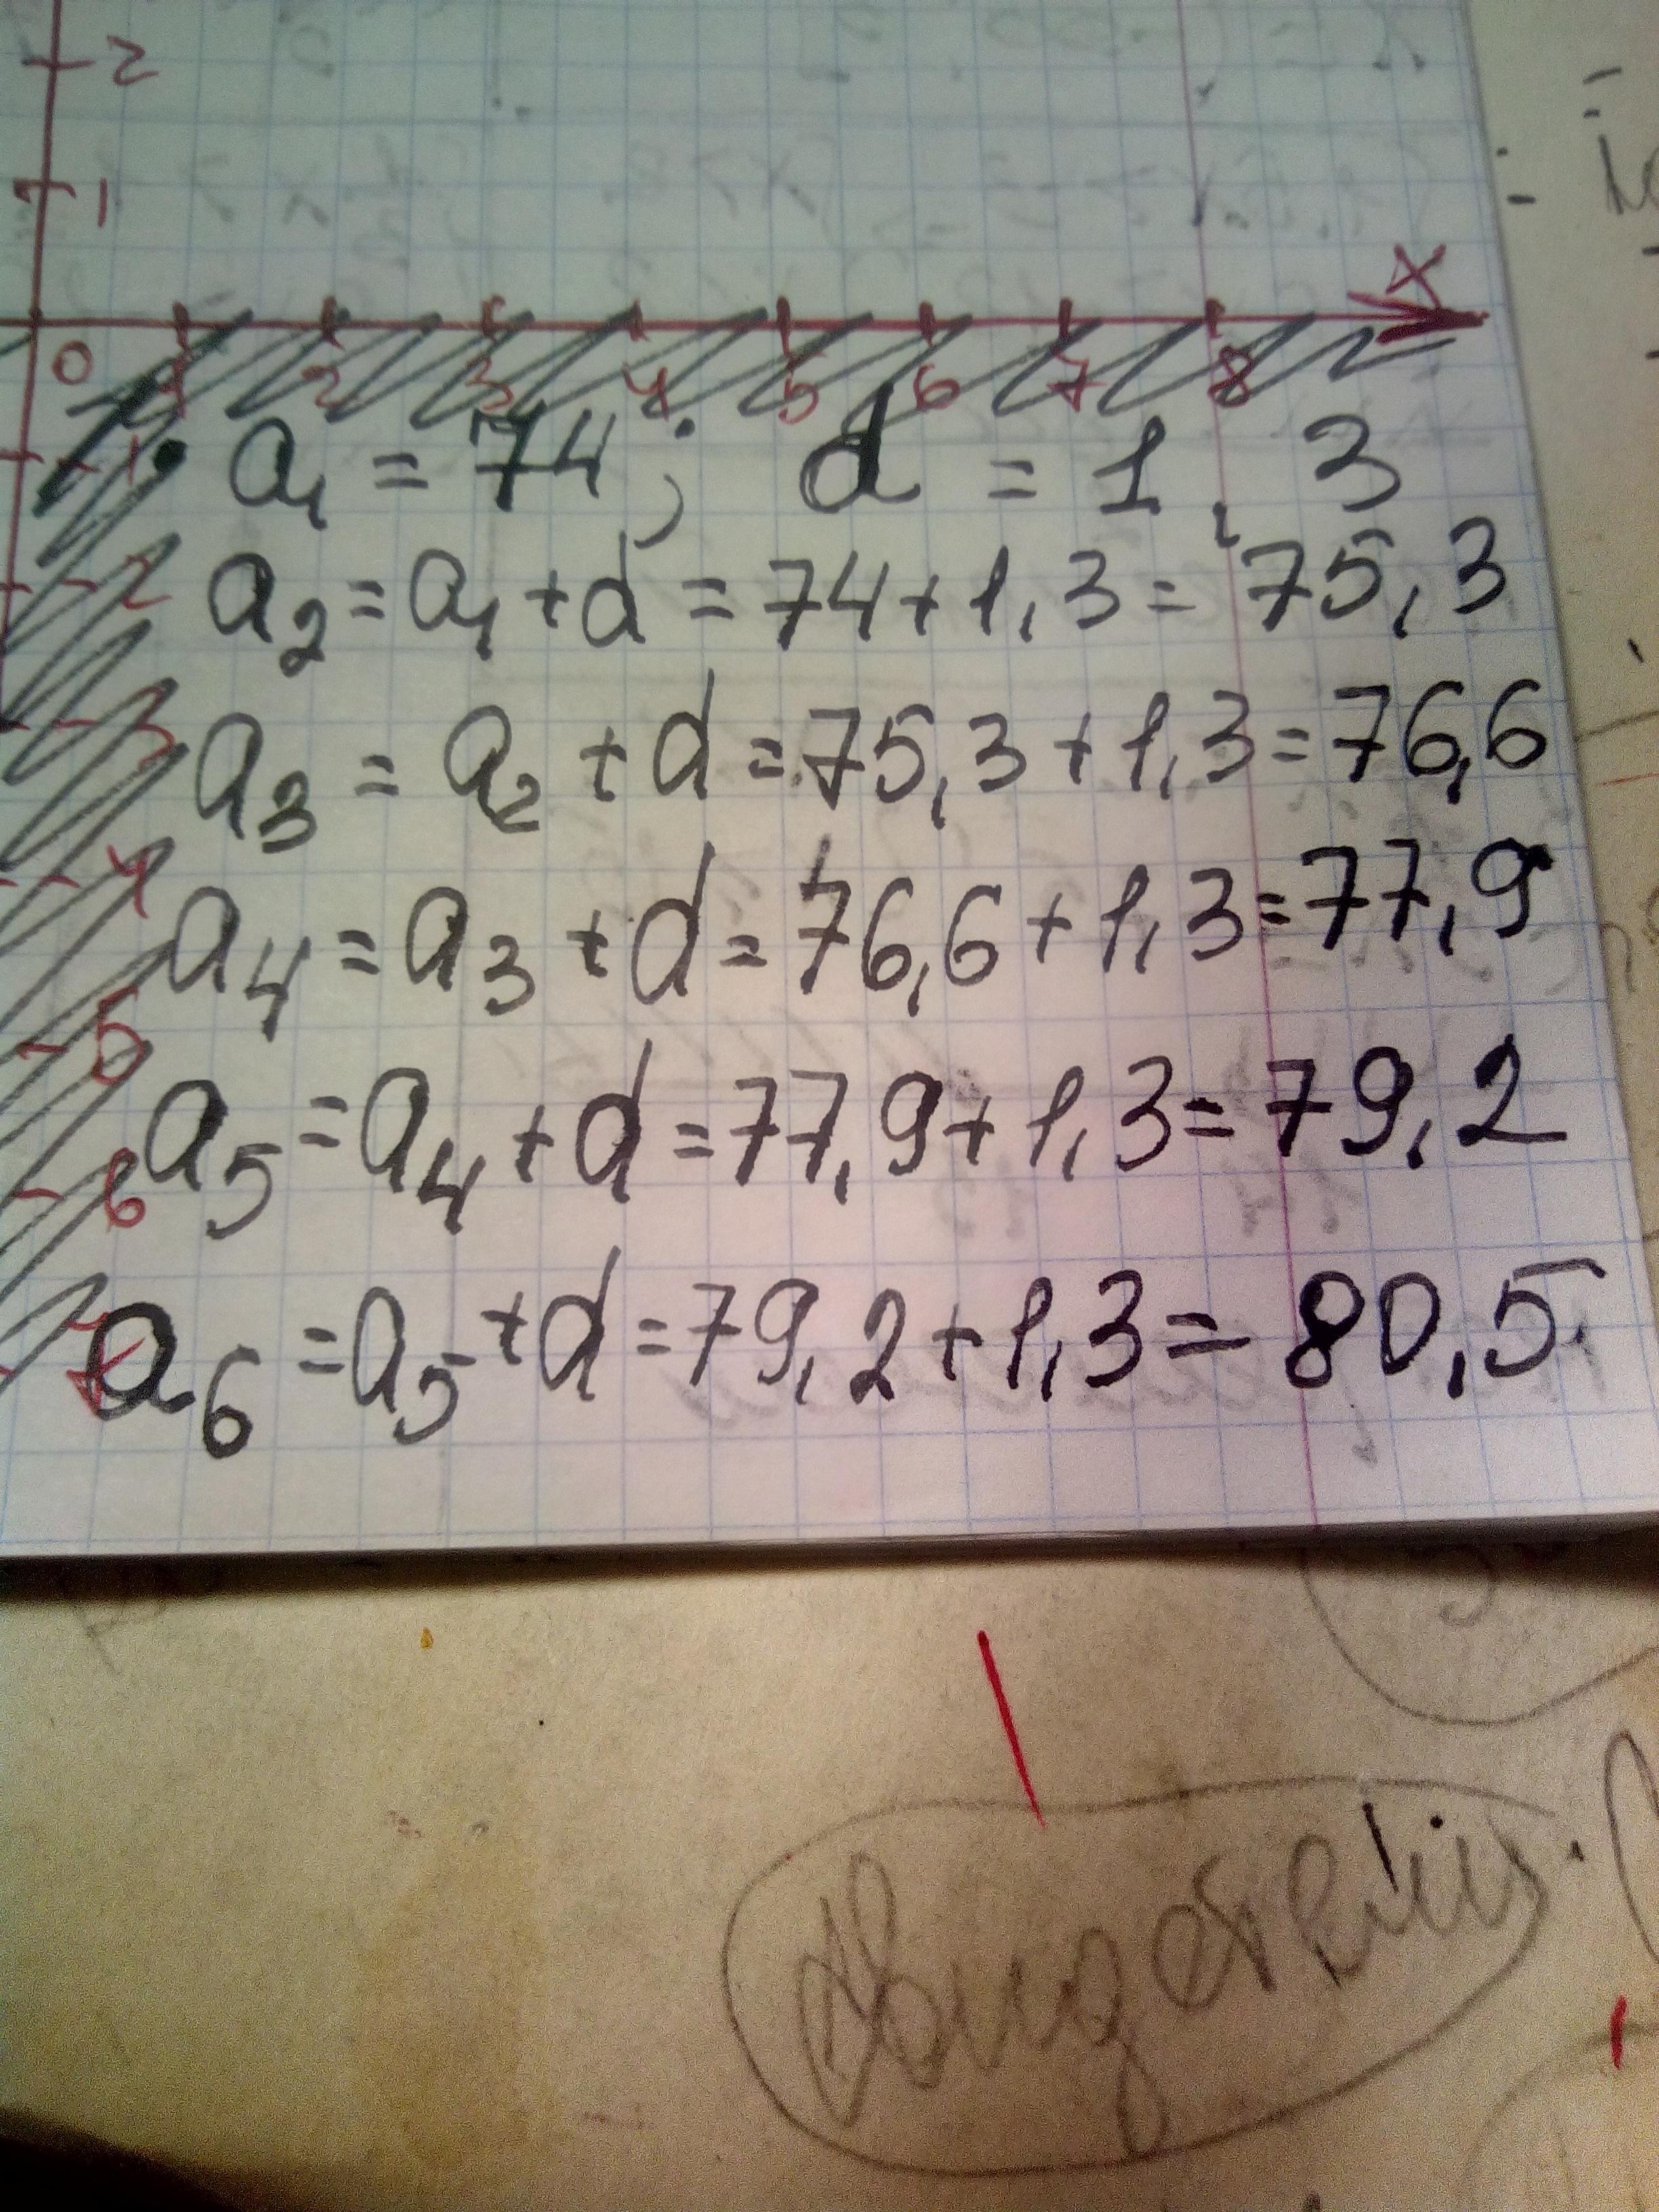 2
1
X
0 1 2 3 4 5 6 7 8
-1
a1 = 74; d = 1,3
-2
a2 = a1 + d = 74 + 1,3 = 75,3
-3
a3 = a2 + d = 75,3 + 1,3 = 76,6
-4
a4 = a3 + d = 76,6 + 1,3 = 77,9
-5
a5 = a4 + d = 77,9 + 1,3 = 79,2
-6
a6 = a5 + d = 79,2 + 1,3 = 80,5
-7